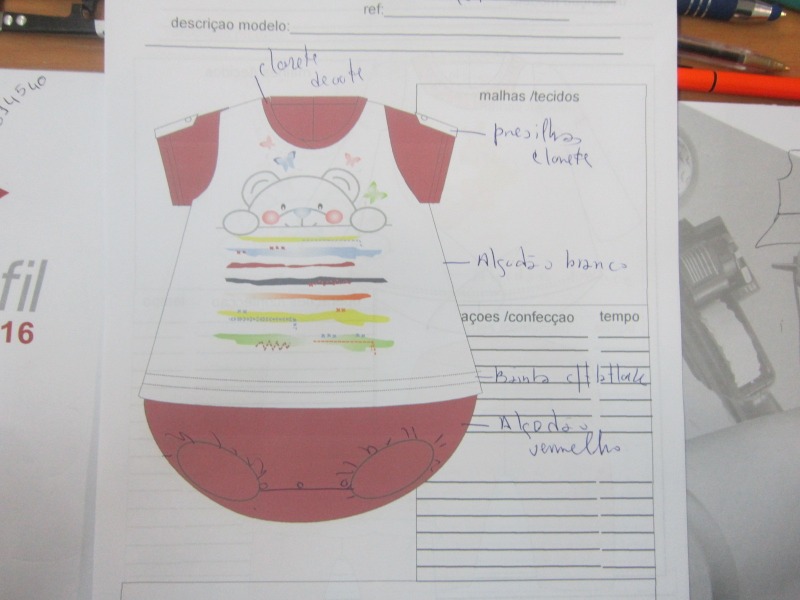 ref:
descriçao modelo:
decote
malhas /tecidos
presilhas
Algodão branco
açoes /confecção tempo
Bainha
Algodão
vermelho
34540
fil
16